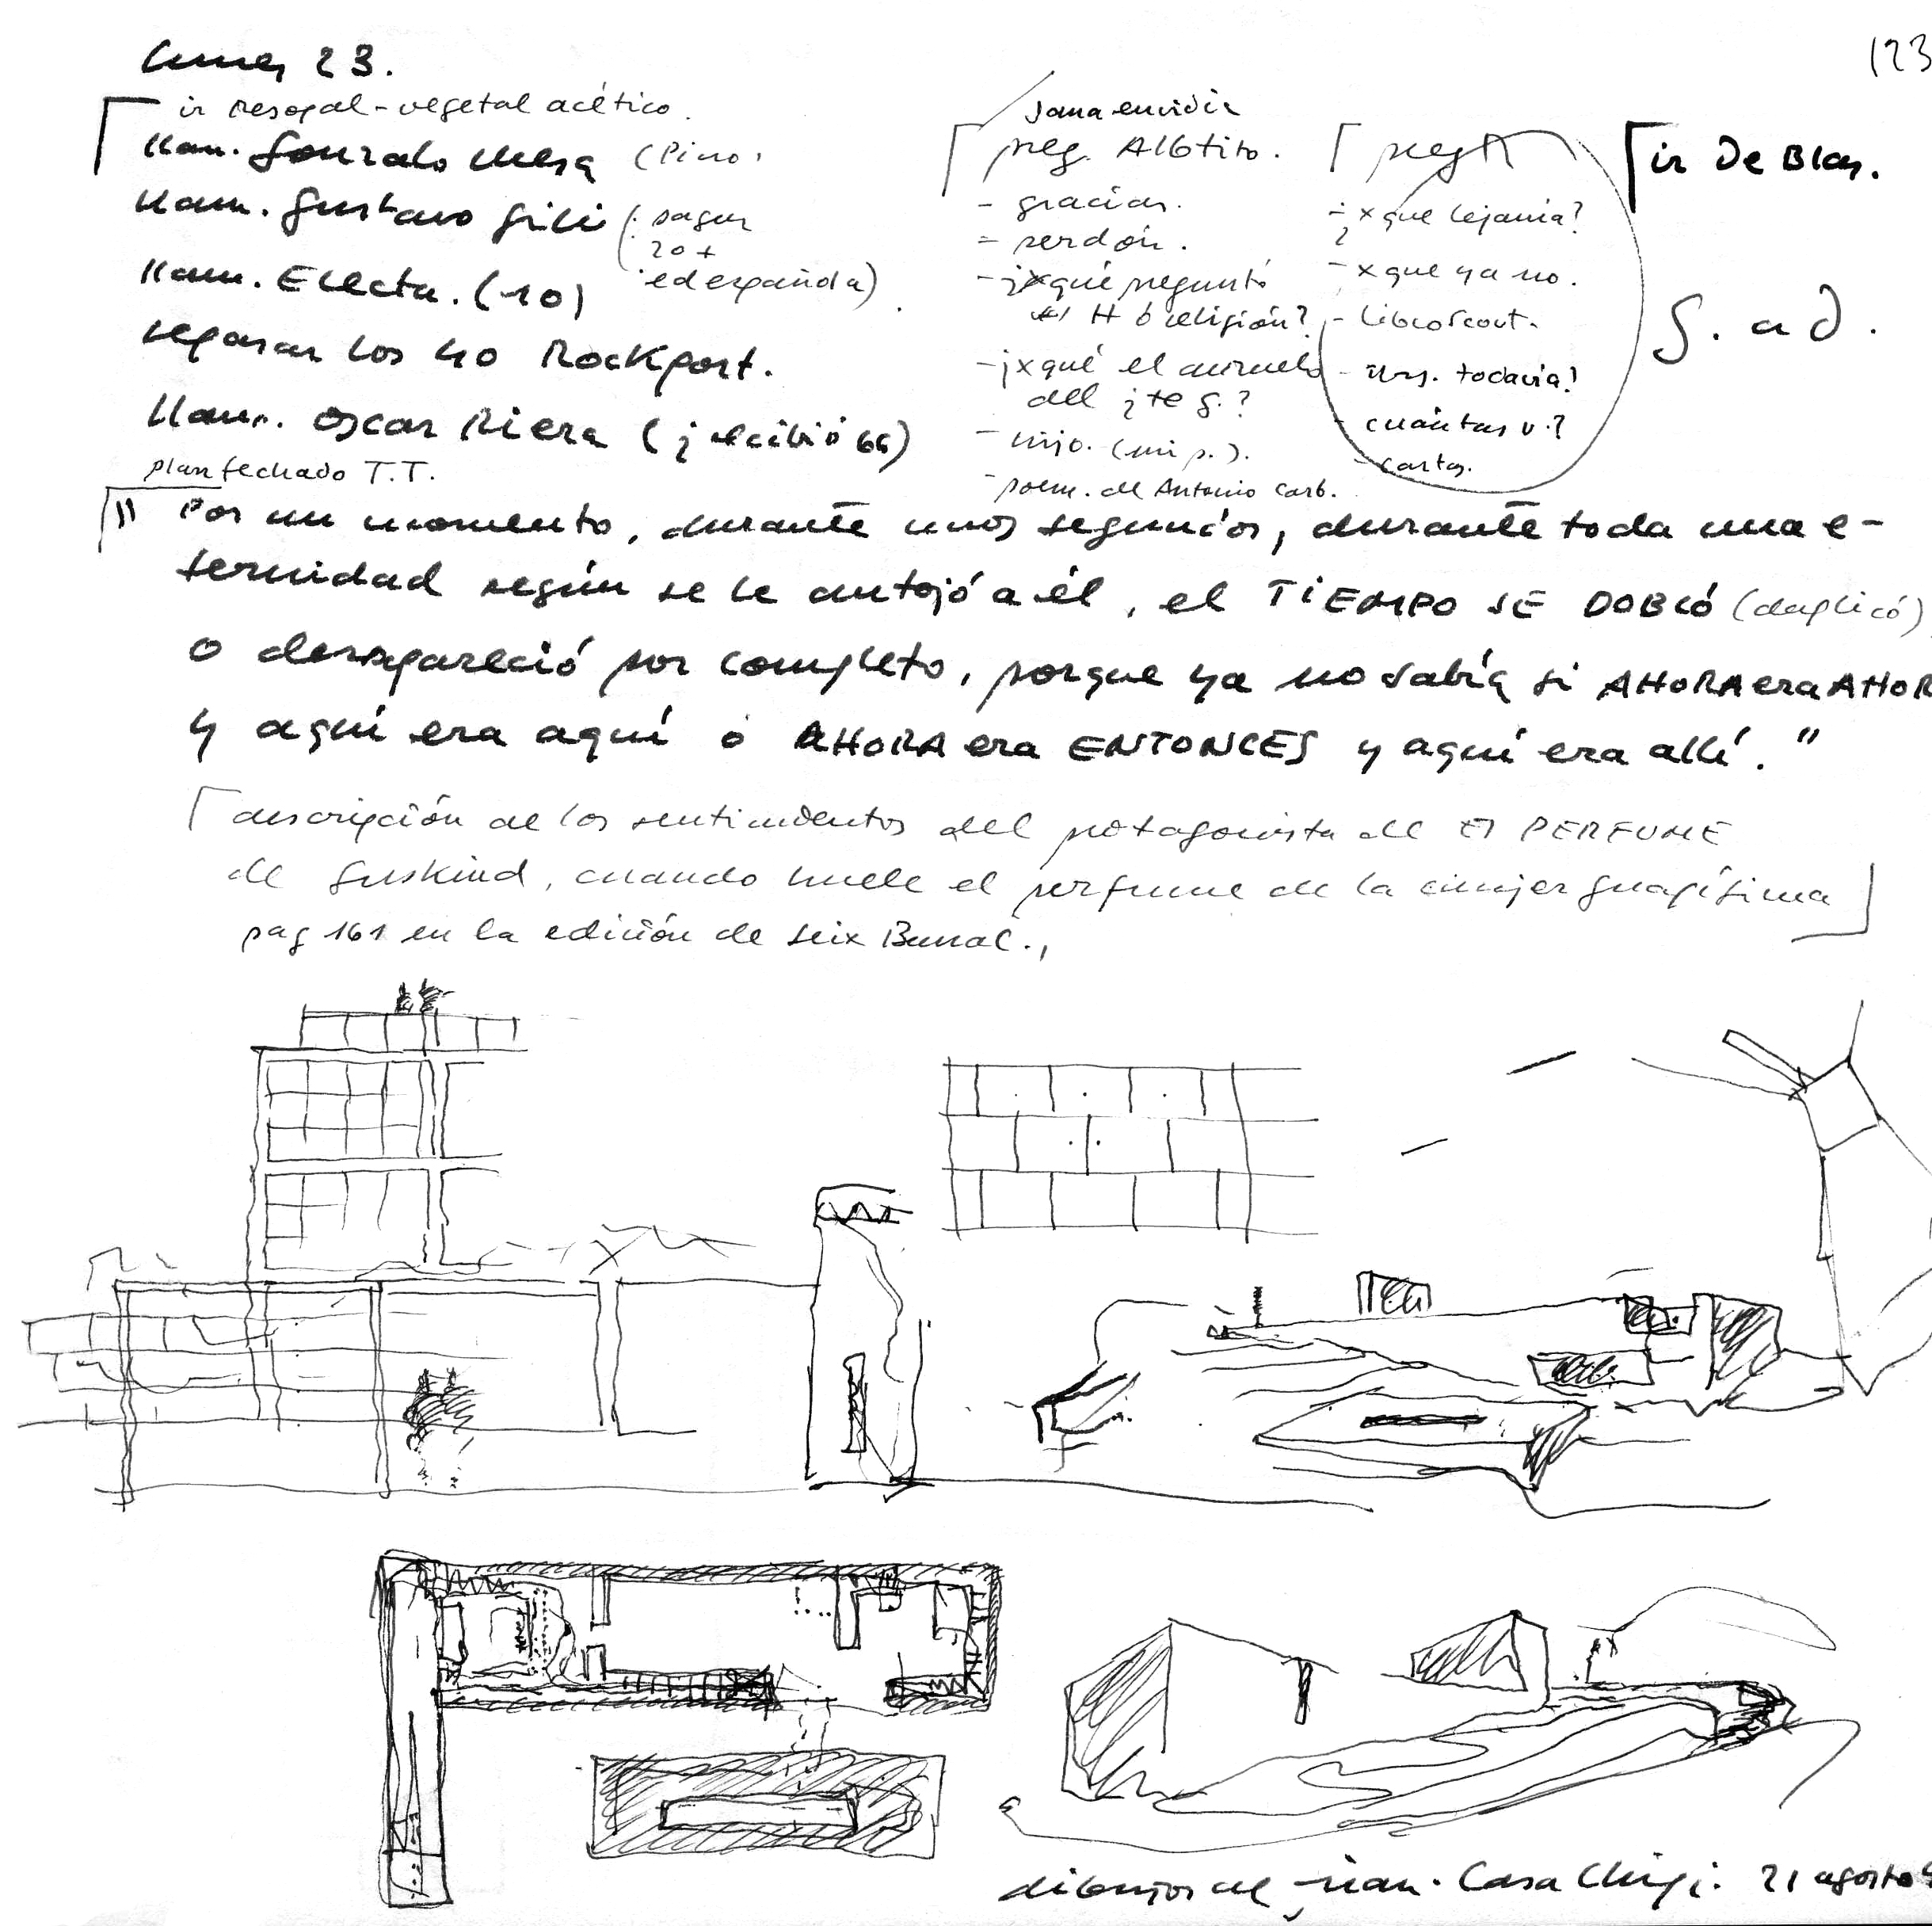 lunes 23.
123
ir Resopal - vegetal acético.
llam. Gonzalo Mesa (Pino.
llam. Gustavo Gili (: pagar
20 +
ed española)
llam. Electa. (10)
separar los 40 Rockport.
llam. Oscar Riera (¿ recibió 66)
plan fechado T.T.
sana envidia
preg. Al6tito.
- gracias.
- perdón.
- ¿xqué preguntó
H ó religión?
- ¿xqué el
del ¿te g.?
- hijo. (mi p.).
- poem. de Antonio Carb.
preg
- ¿x que lejanía?
- x que ya no.
- libro Scout.
todavía?
- cuántas v.?
- cartas.
ir De Blas.
G. a d.
" Por un momento, durante unos segundos, durante toda una e-
ternidad según se le antojó a él, el TIEMPO SE DOBLÓ (duplicó)
o desapareció por completo, porque ya no sabía si AHORA era AHOR
y aquí era aquí ó AHORA era ENTONCES y aquí era allí."
descripción de los sentimientos del protagonista de El PERFUME
de Suskind, cuando huele el perfume de la mujer guapísima
pag 161 en la edición de Seix Barral.,
dibujos de Juan. Casa Chigi. 21 agosto